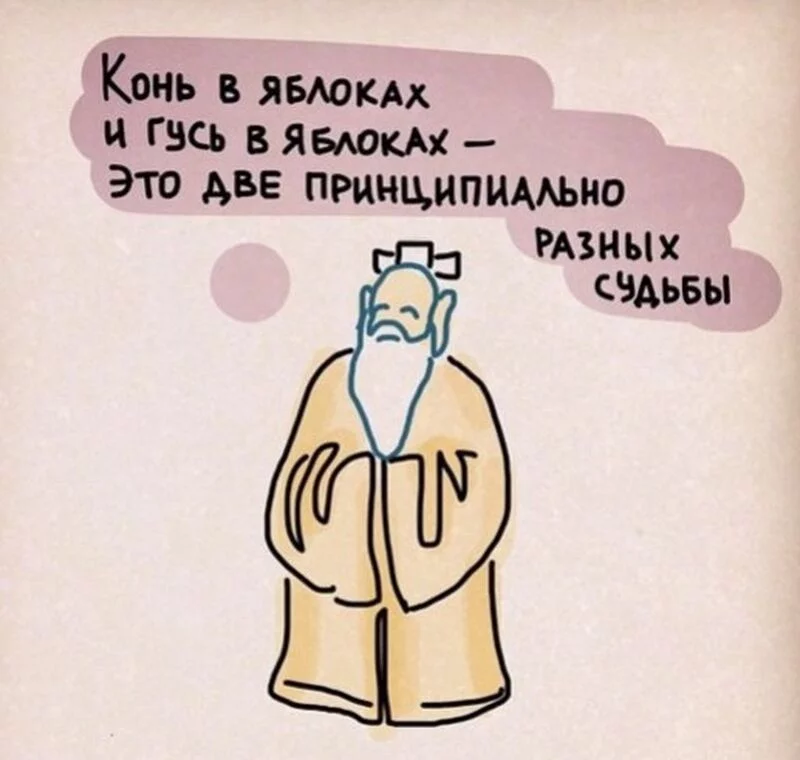 Конь в яблоках
и гусь в яблоках –
это две принципиально
разных
судьбы